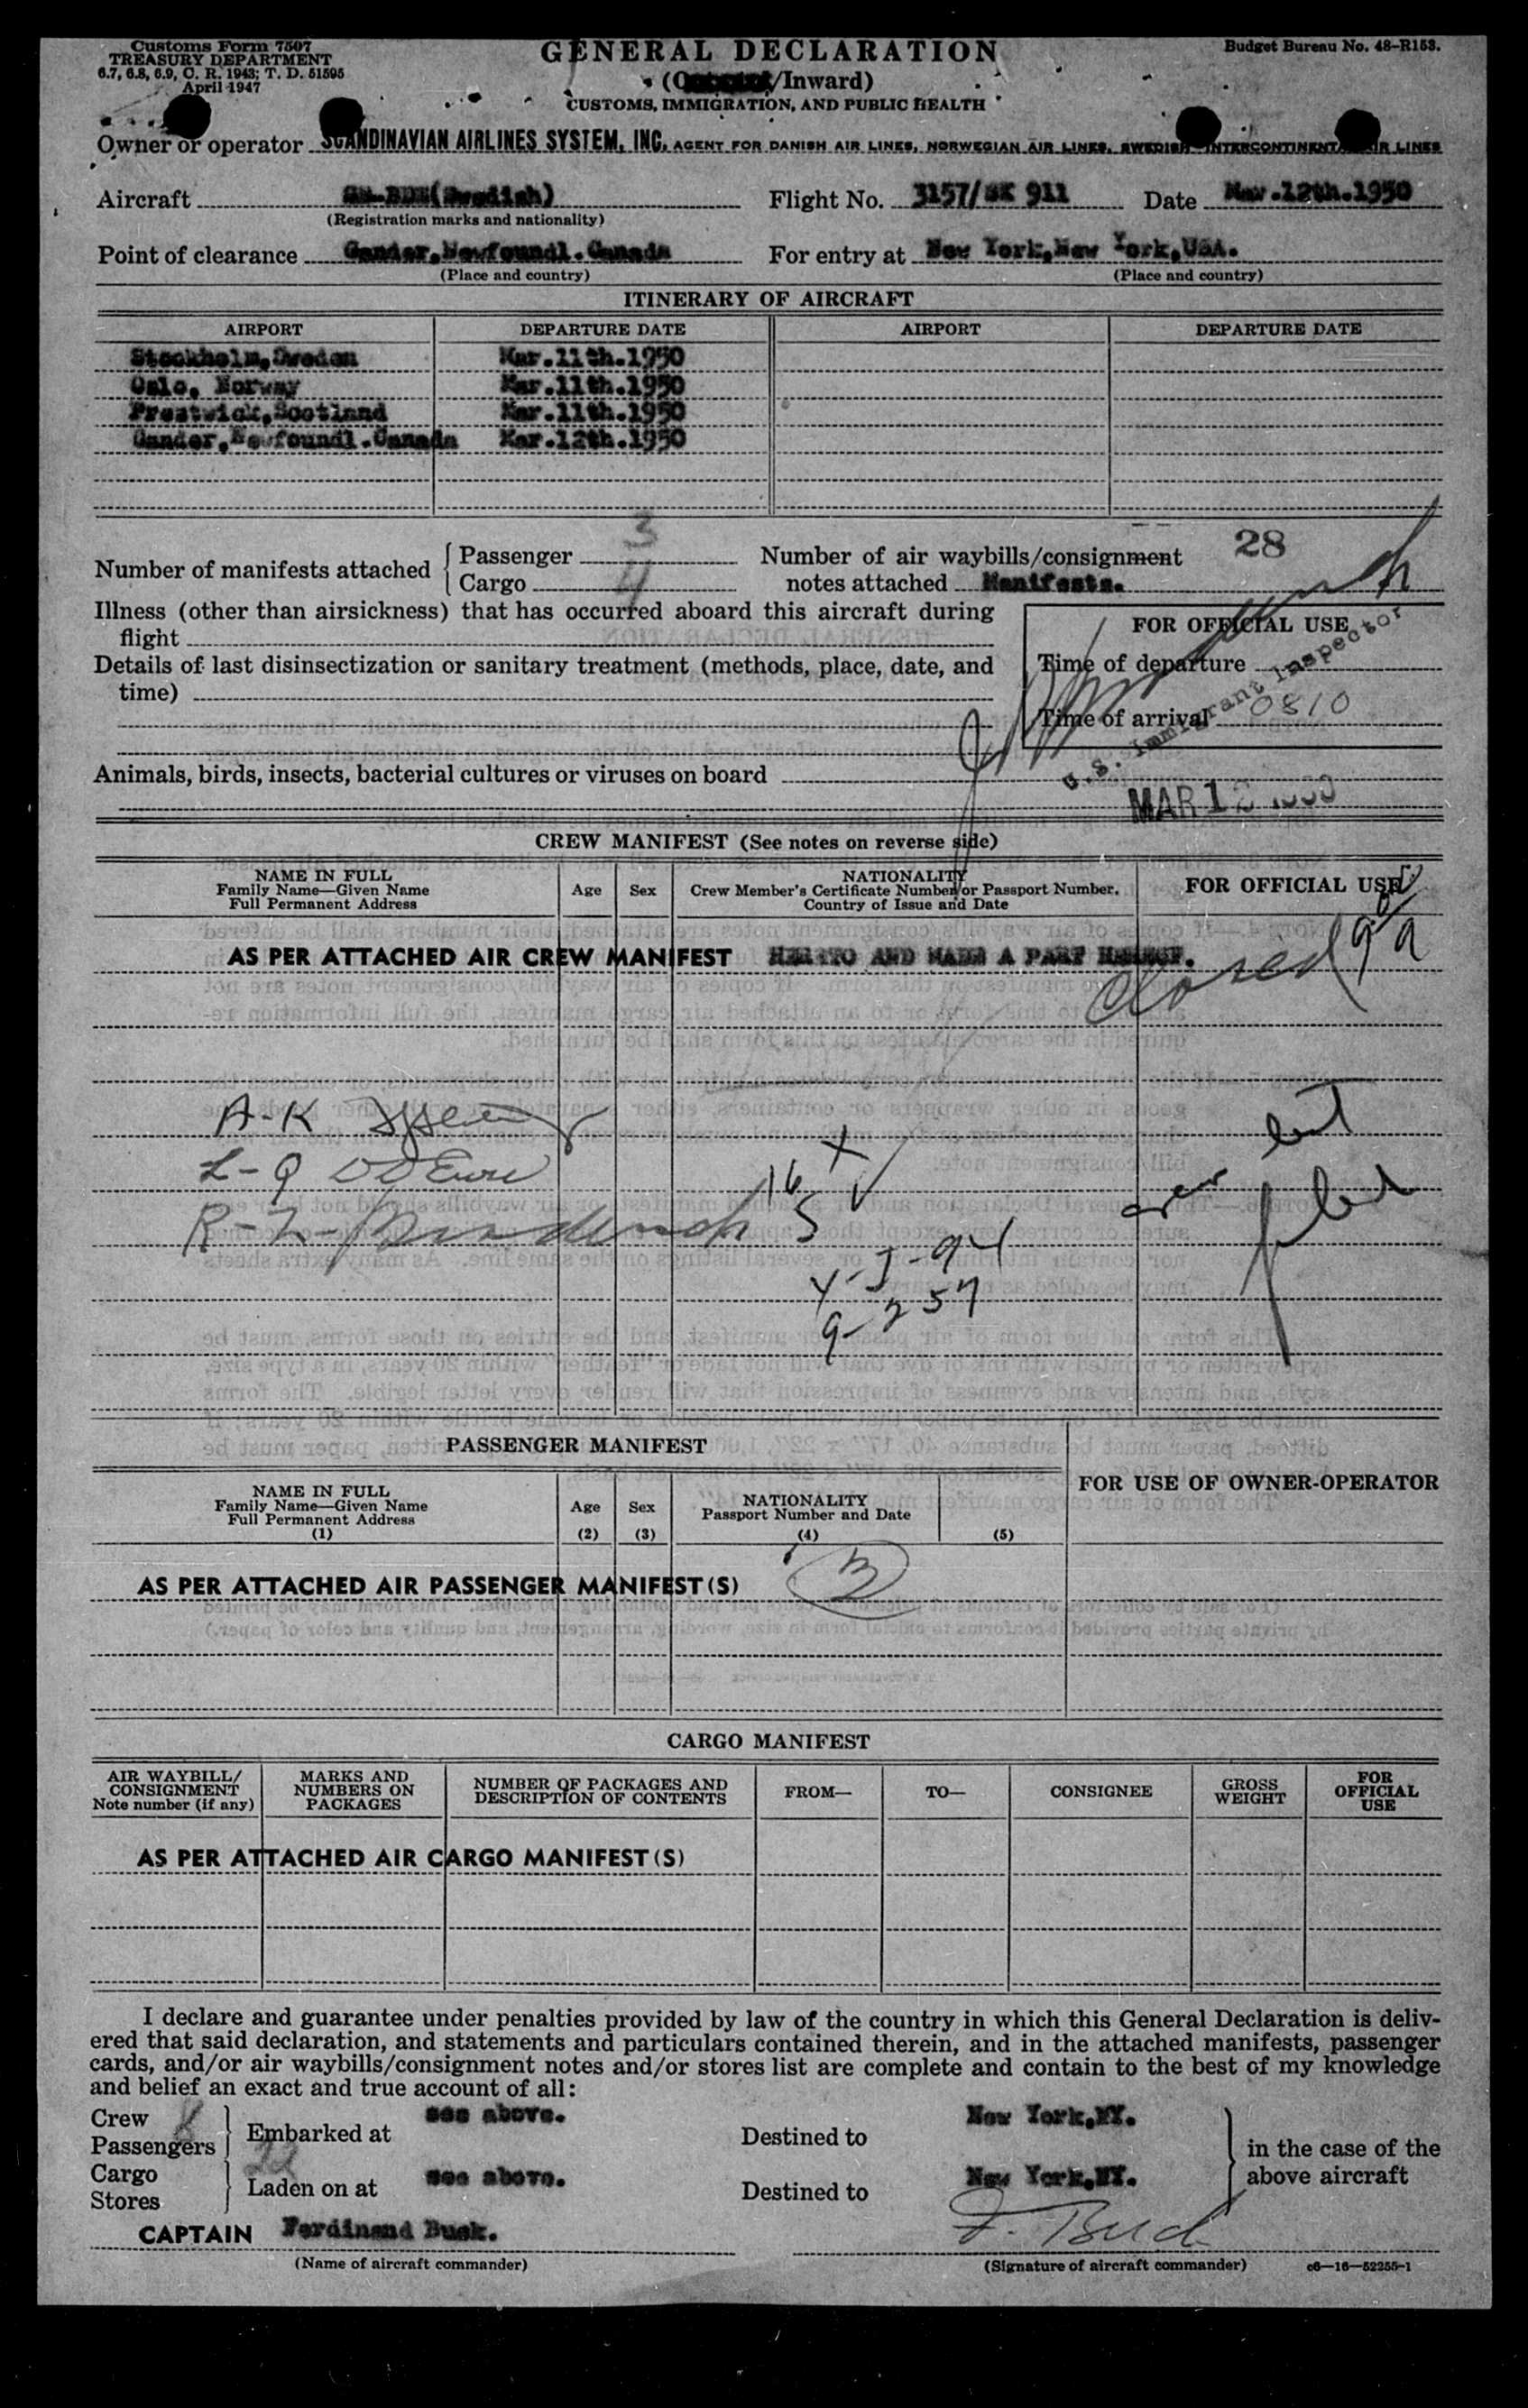 Customs Form 7507
TREASURY DEPARTMENT
6.7, 6.8, 6.9, C. R. 1943; T. D. 51595
April 1947
GENERAL DECLARATION
/Inward)
CUSTOMS, IMMIGRATION, AND PUBLIC HEALTH
Budget Bureau No. 48-R153.
Owner or operator SCANDINAVIAN AIRLINES SYSTEM, INC. AGENT FOR DANISH AIR LINES, NORWEGIAN AIR LINES, SWEDISH INTERCONTINENTAL AIR LINES
Aircraft (Swedish) Flight No. 3157/SK 911 Date Mar.12th.1950
(Registration marks and nationality)
Point of clearance Gander,Newfoundl.Canada For entry at New York,New York,USA.
(Place and country) (Place and country)
ITINERARY OF AIRCRAFT
AIRPORT DEPARTURE DATE AIRPORT DEPARTURE DATE
Stockholm,Sweden Mar.11th.1950
Oslo, Norway Mar.11th.1950
Prestwick,Scotland Mar.11th.1950
Gander,Newfoundl.Canada Mar.12th.1950
Number of manifests attached Passenger 3 Number of air waybills/consignment 28
Cargo 4 notes attached Manifests.
Illness (other than airsickness) that has occurred aboard this aircraft during
flight
Details of last disinsectization or sanitary treatment (methods, place, date, and
time)
FOR OFFICIAL USE
Time of departure
Time of arrival 0810
U.S. Immigrant Inspector
Animals, birds, insects, bacterial cultures or viruses on board
MAR 12 1950
CREW MANIFEST (See notes on reverse side)
NAME IN FULL
Family Name—Given Name
Full Permanent Address
Age Sex
NATIONALITY
Crew Member's Certificate Number or Passport Number,
Country of Issue and Date
FOR OFFICIAL USE
AS PER ATTACHED AIR CREW MANIFEST HERETO AND MADE A PART HEREOF.
Closed
A-K
L-Q
R-Z
16
5
4-J-94
9-257
crew list
PASSENGER MANIFEST
NAME IN FULL
Family Name—Given Name
Full Permanent Address
(1)
Age
(2)
Sex
(3)
NATIONALITY
Passport Number and Date
(4) (5)
FOR USE OF OWNER-OPERATOR
AS PER ATTACHED AIR PASSENGER MANIFEST(S) 3
CARGO MANIFEST
AIR WAYBILL/
CONSIGNMENT
Note number (if any)
MARKS AND
NUMBERS ON
PACKAGES
NUMBER OF PACKAGES AND
DESCRIPTION OF CONTENTS
FROM— TO— CONSIGNEE
GROSS
WEIGHT
FOR
OFFICIAL
USE
AS PER ATTACHED AIR CARGO MANIFEST(S)
I declare and guarantee under penalties provided by law of the country in which this General Declaration is deliv-
ered that said declaration, and statements and particulars contained therein, and in the attached manifests, passenger
cards, and/or air waybills/consignment notes and/or stores list are complete and contain to the best of my knowledge
and belief an exact and true account of all:
Crew 8
Passengers 22
Embarked at see above. Destined to New York,NY.
Cargo
Stores
Laden on at see above. Destined to New York,NY.
in the case of the
above aircraft
CAPTAIN Ferdinand Busk.
(Name of aircraft commander) (Signature of aircraft commander) c6—16—52255-1